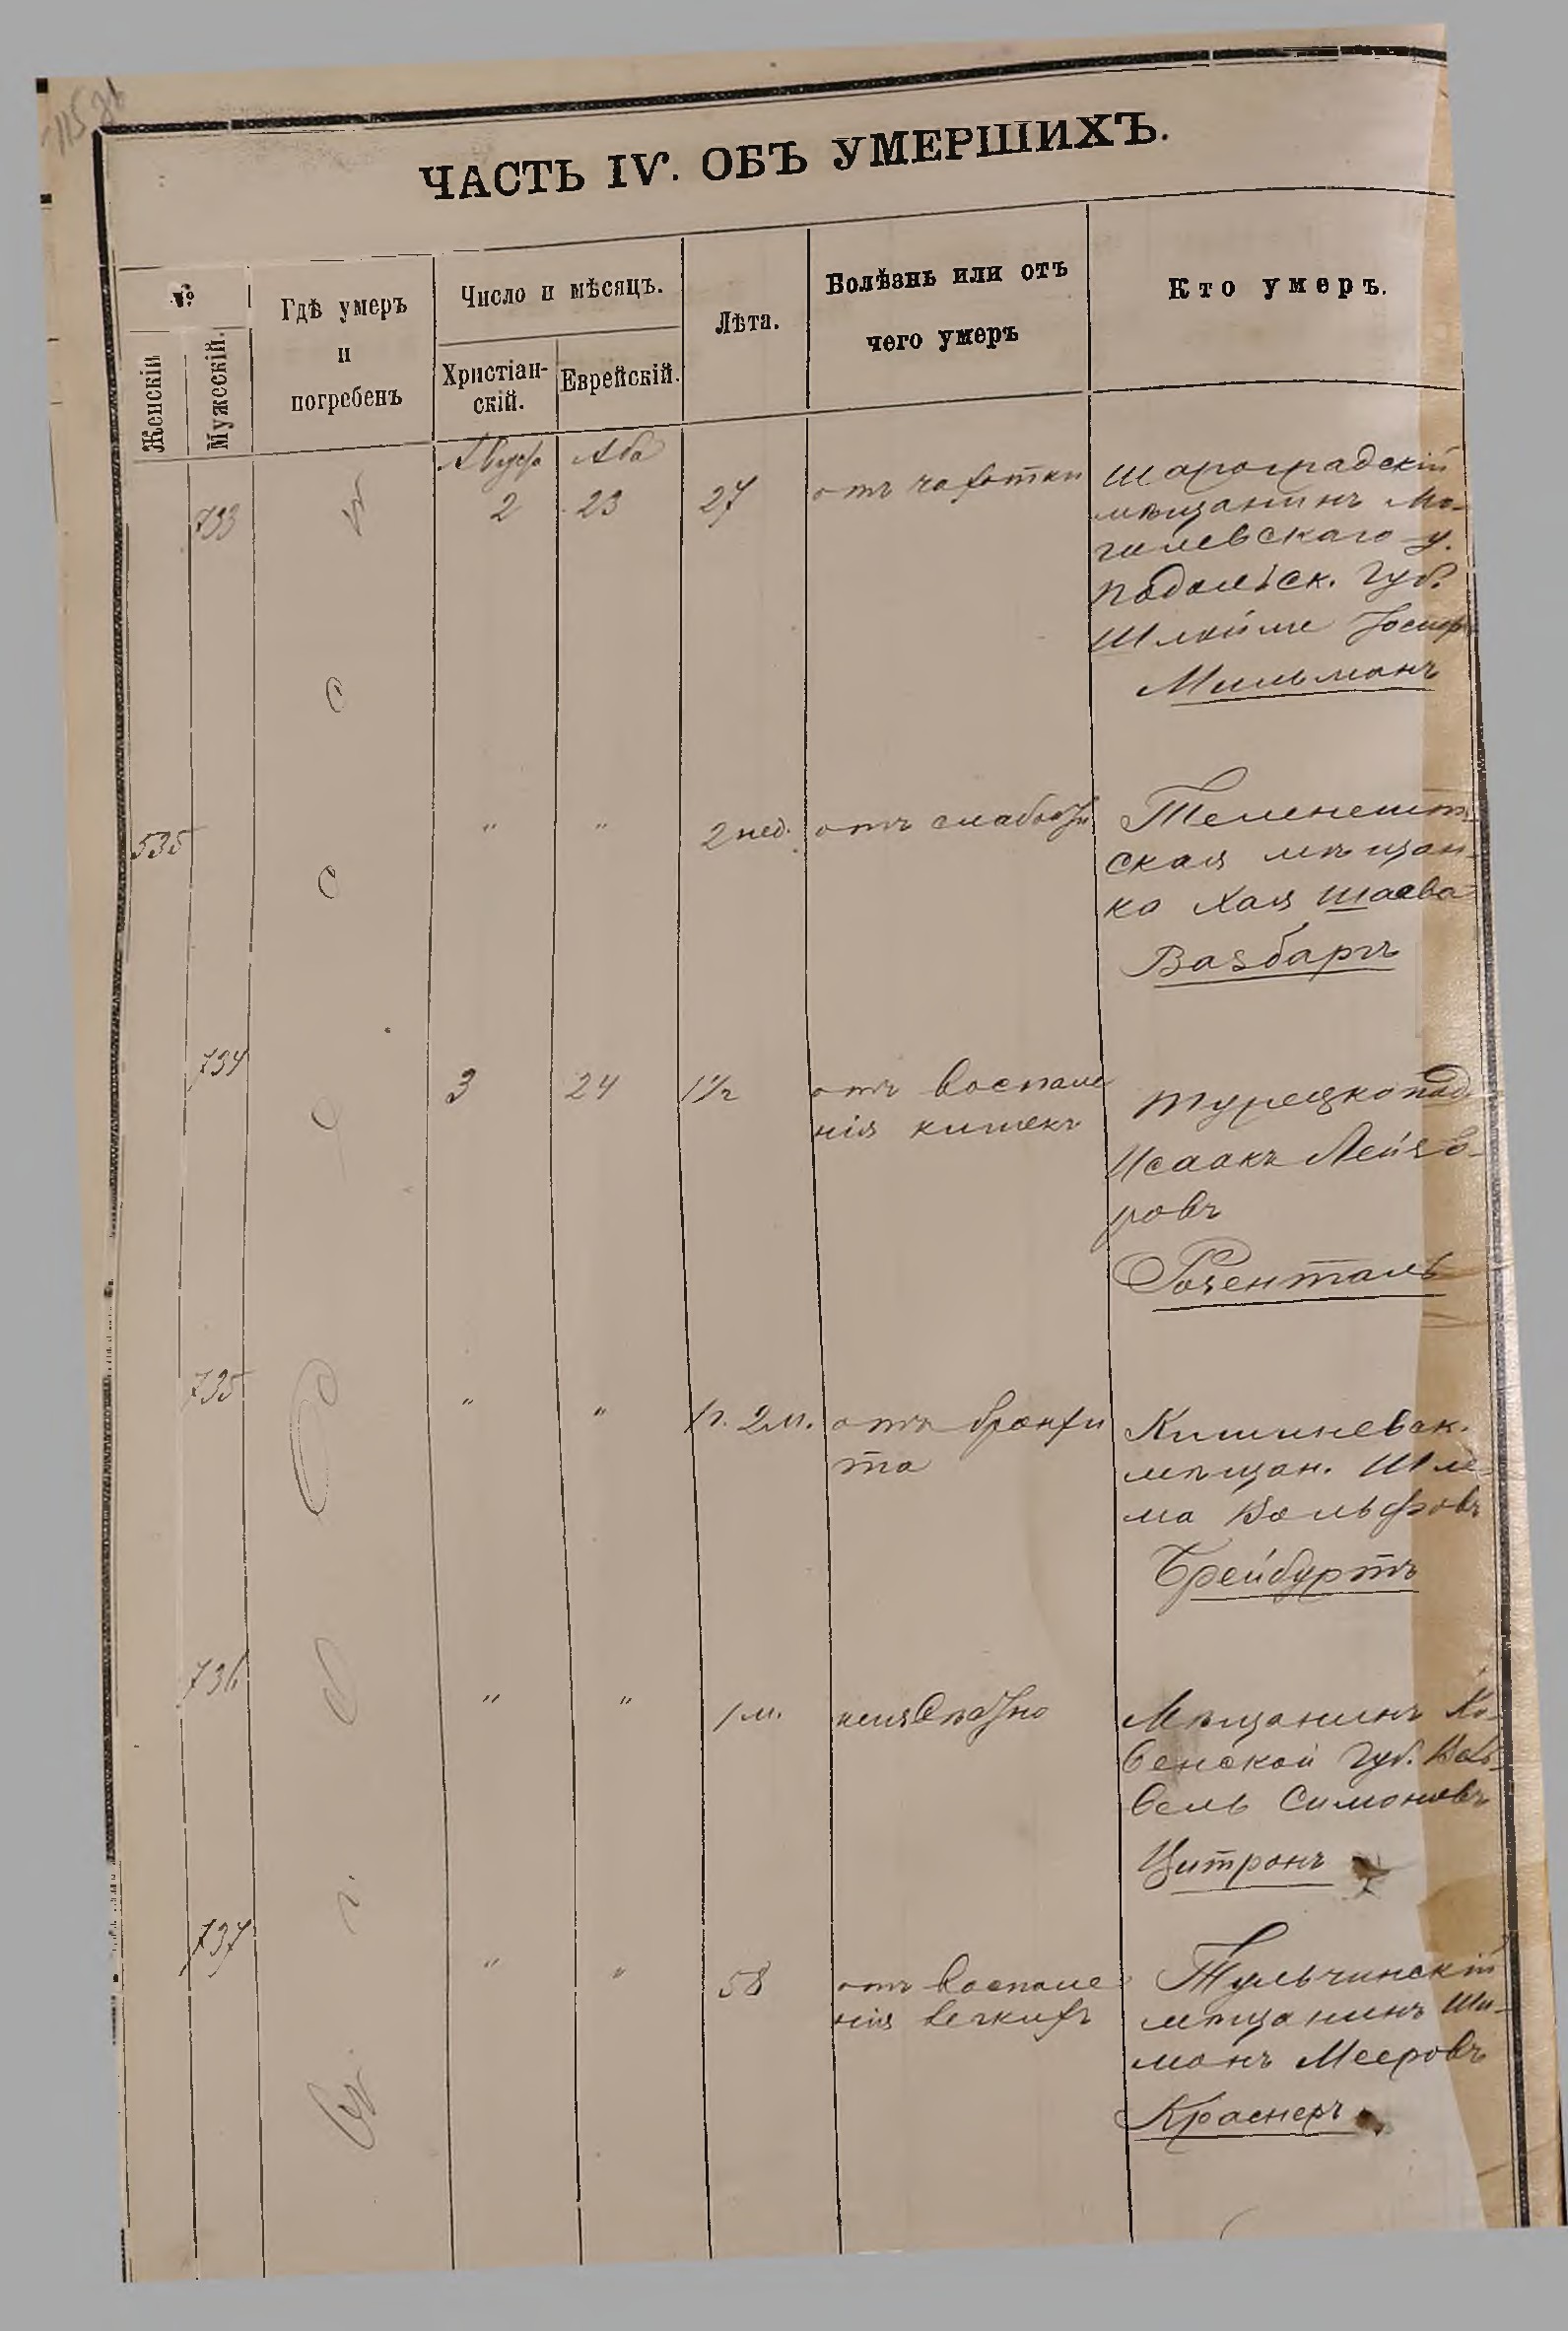 ЧАСТЬ IV. ОБЪ УМЕРШИХЪ.
№
Женскій
Мужескій.
Гдѣ умеръ
и
погребенъ
Число и мѣсяцъ.
Христіан-
скій.
Еврейскій.
Лѣта.
Болѣзнь или отъ
чего умеръ
Кто умеръ.
Августа Аба
733 2 23 27 отъ чахотки Шароградскій
мѣщанинъ Мо-
гилевскаго у.
Подольск. Губ.
Шлойме Іосиф
Мильманъ
535 " " 2 нед. отъ слабости Теленешт-
ская мѣщан-
ка Хая Шаева
Вазбаръ
734 3 24 1½ отъ воспале Турецкопод.
нія кишекъ Исаакъ Лейзо-
ровъ
Розенталь
735 " " 1 г. 2 м. отъ бронхи Кишиневск.
та мѣщан. Шле-
ма Вольфовъ
Брейбуртъ
736 " " 1 м. неизвѣстно Мѣщанинъ Ко-
венской Губ.
вель Симоновъ
Цитронъ
737 " " 58 отъ воспале Тульчинскій
нія легкихъ мѣщанинъ Ши-
монъ Мееровъ
Краснеръ